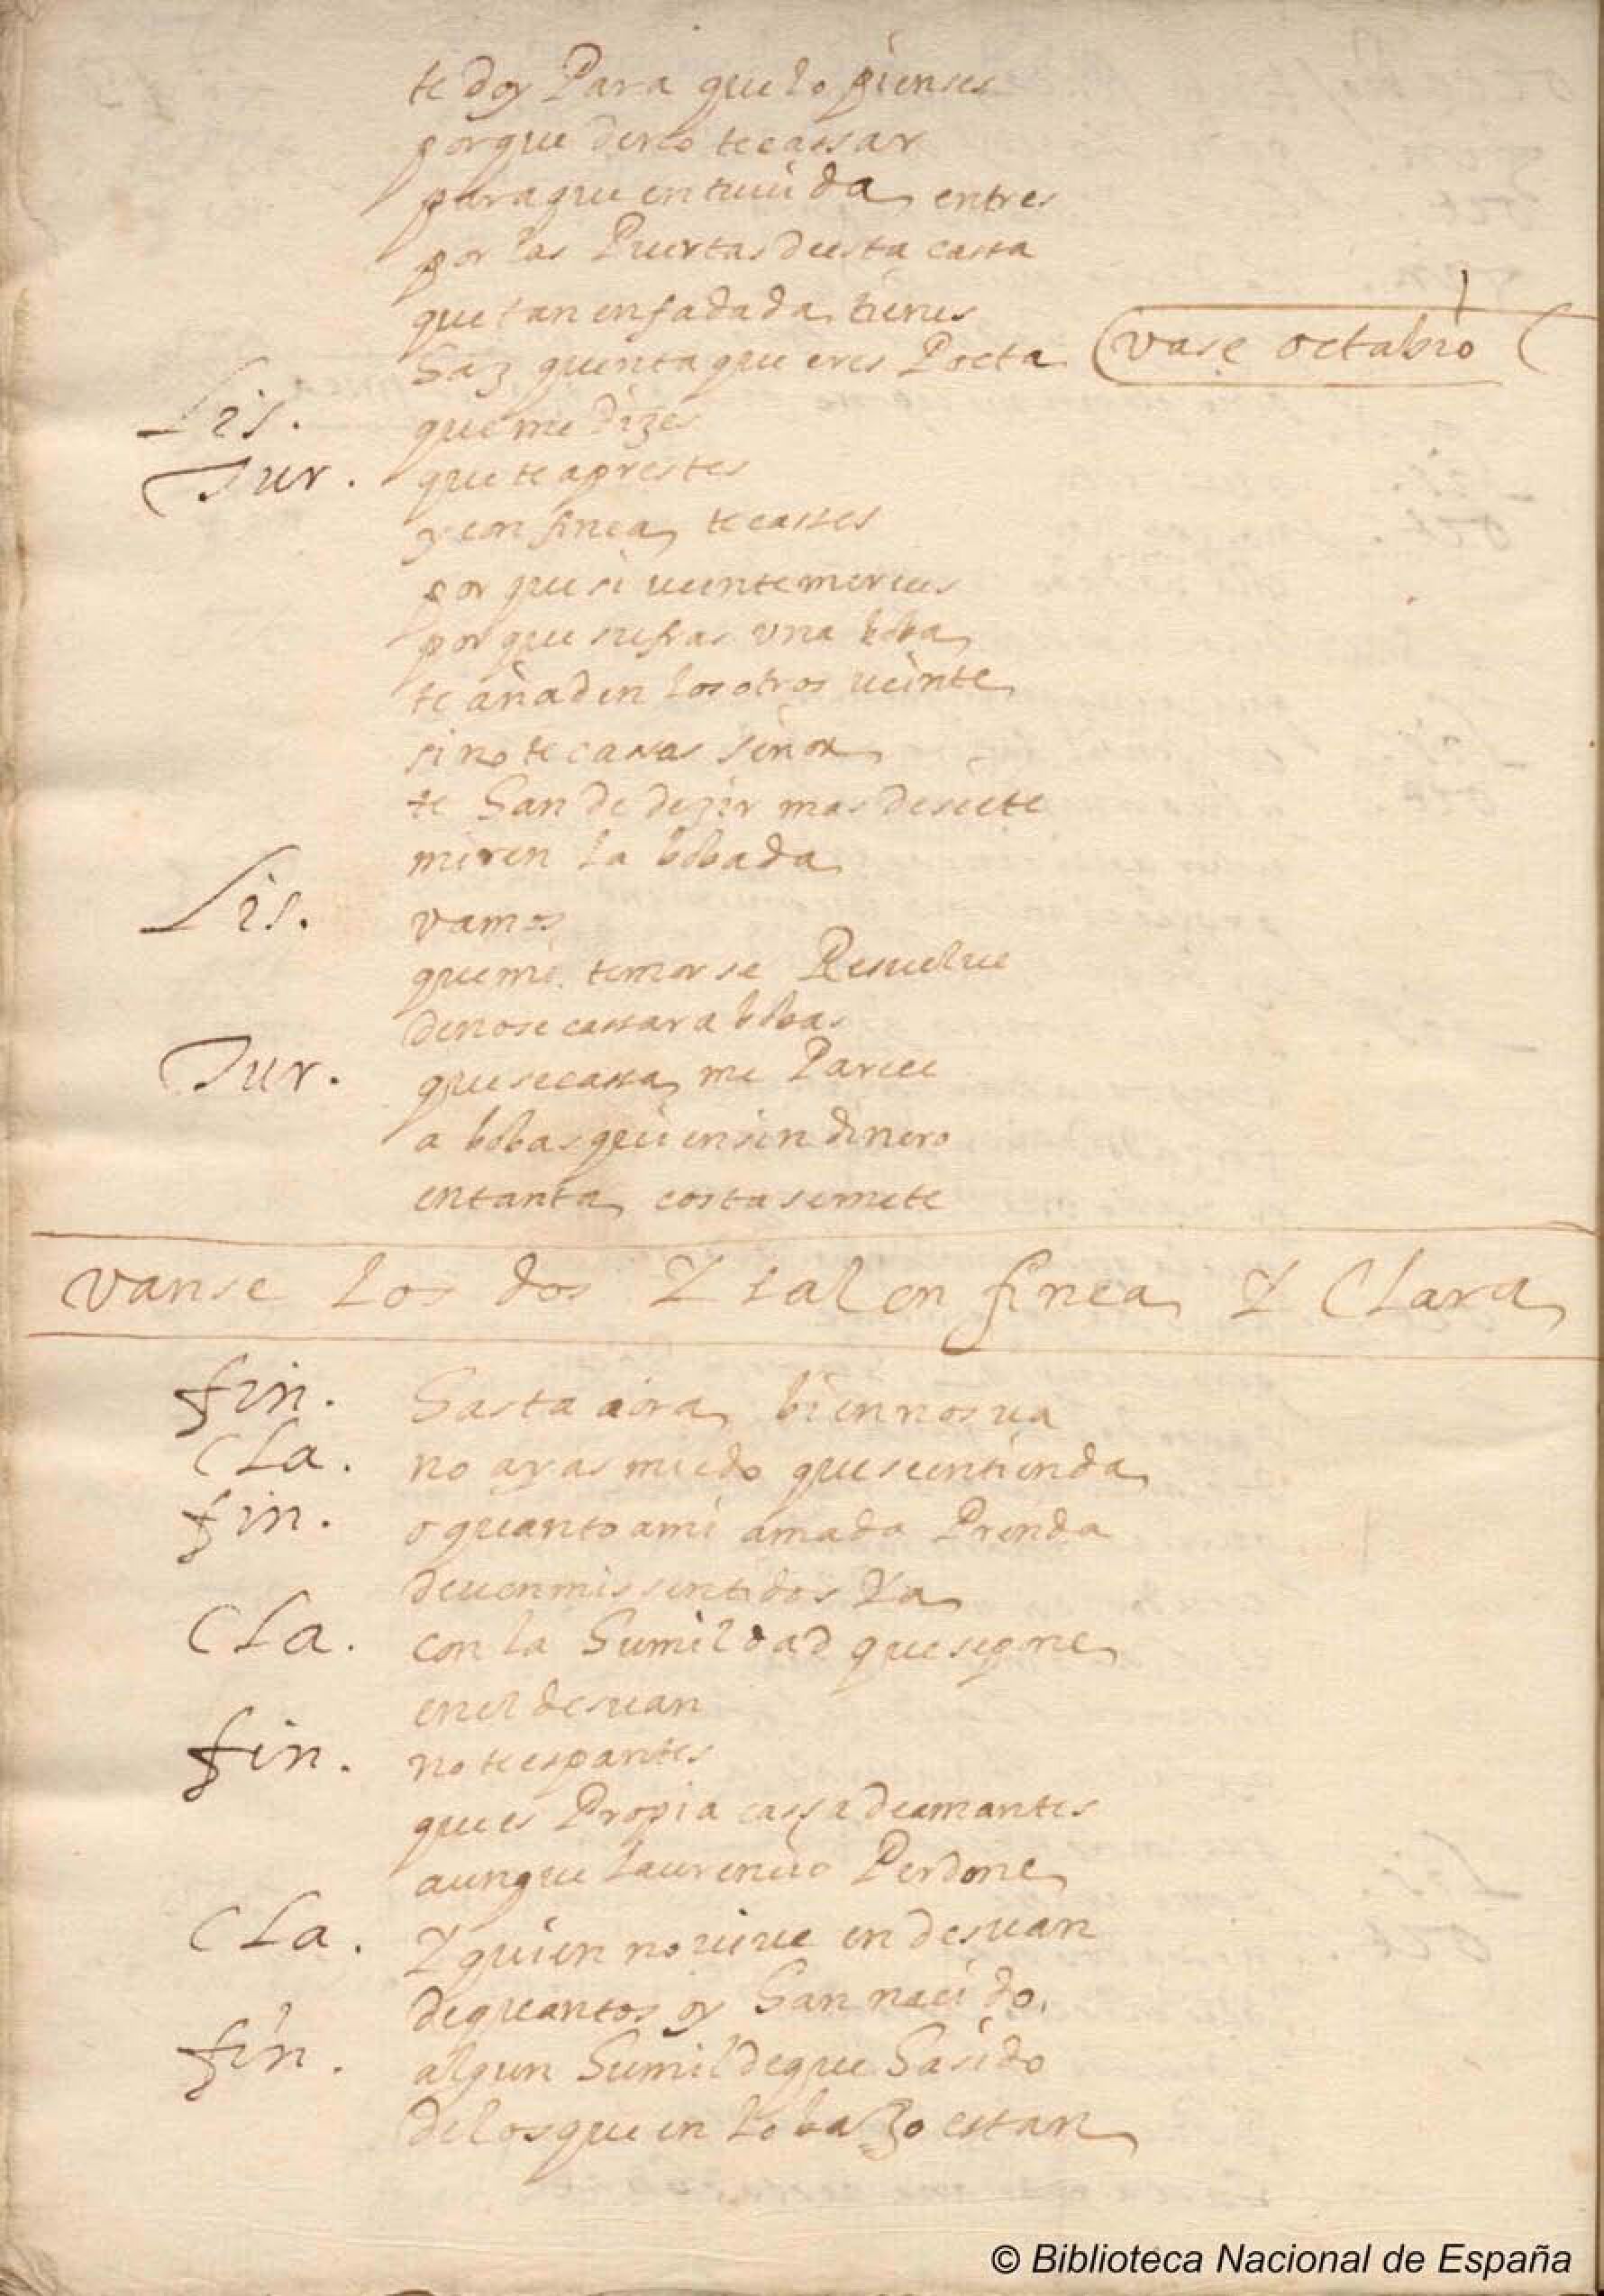 te doy Para que lo pienses
porque de no te cassar
para que en tu uida entres
por las Puertas de esta cassa
que tan enfadada tienes
haz quenta que eres Poeta (vase octabio
Lis. que me dizes
Tur. que te aprestes
y con finea te casses
por que si ueinte mereces
por que sufras vna boba
te añaden los otros ueinte
si no te casas señor
te han de dezir mas de siete
miren la bobada
Lis. vamos
que mi temor se Resuelue
de no se cassar a bobas
Tur. que se cassa me Parece
a bobas quien sin dinero
en tanta costa se mete
vanse los dos Y salen finea Y Clara
fin. hasta aora bien nos ua
Cla. no ayas miedo que se entienda
fin. o quanto a mi amada Prenda
deuen mis sentidos Ya
Cla. con la humildad que se pone
en el desuan
fin. no te espantes
que es Propia cassa de amantes
aunque laurencio Perdone
Cla. Y quien no uiue en desuan
de quantos oy han nacido.
fin. algun humilde que ha sido
de los que en lo baxo estan
© Biblioteca Nacional de España